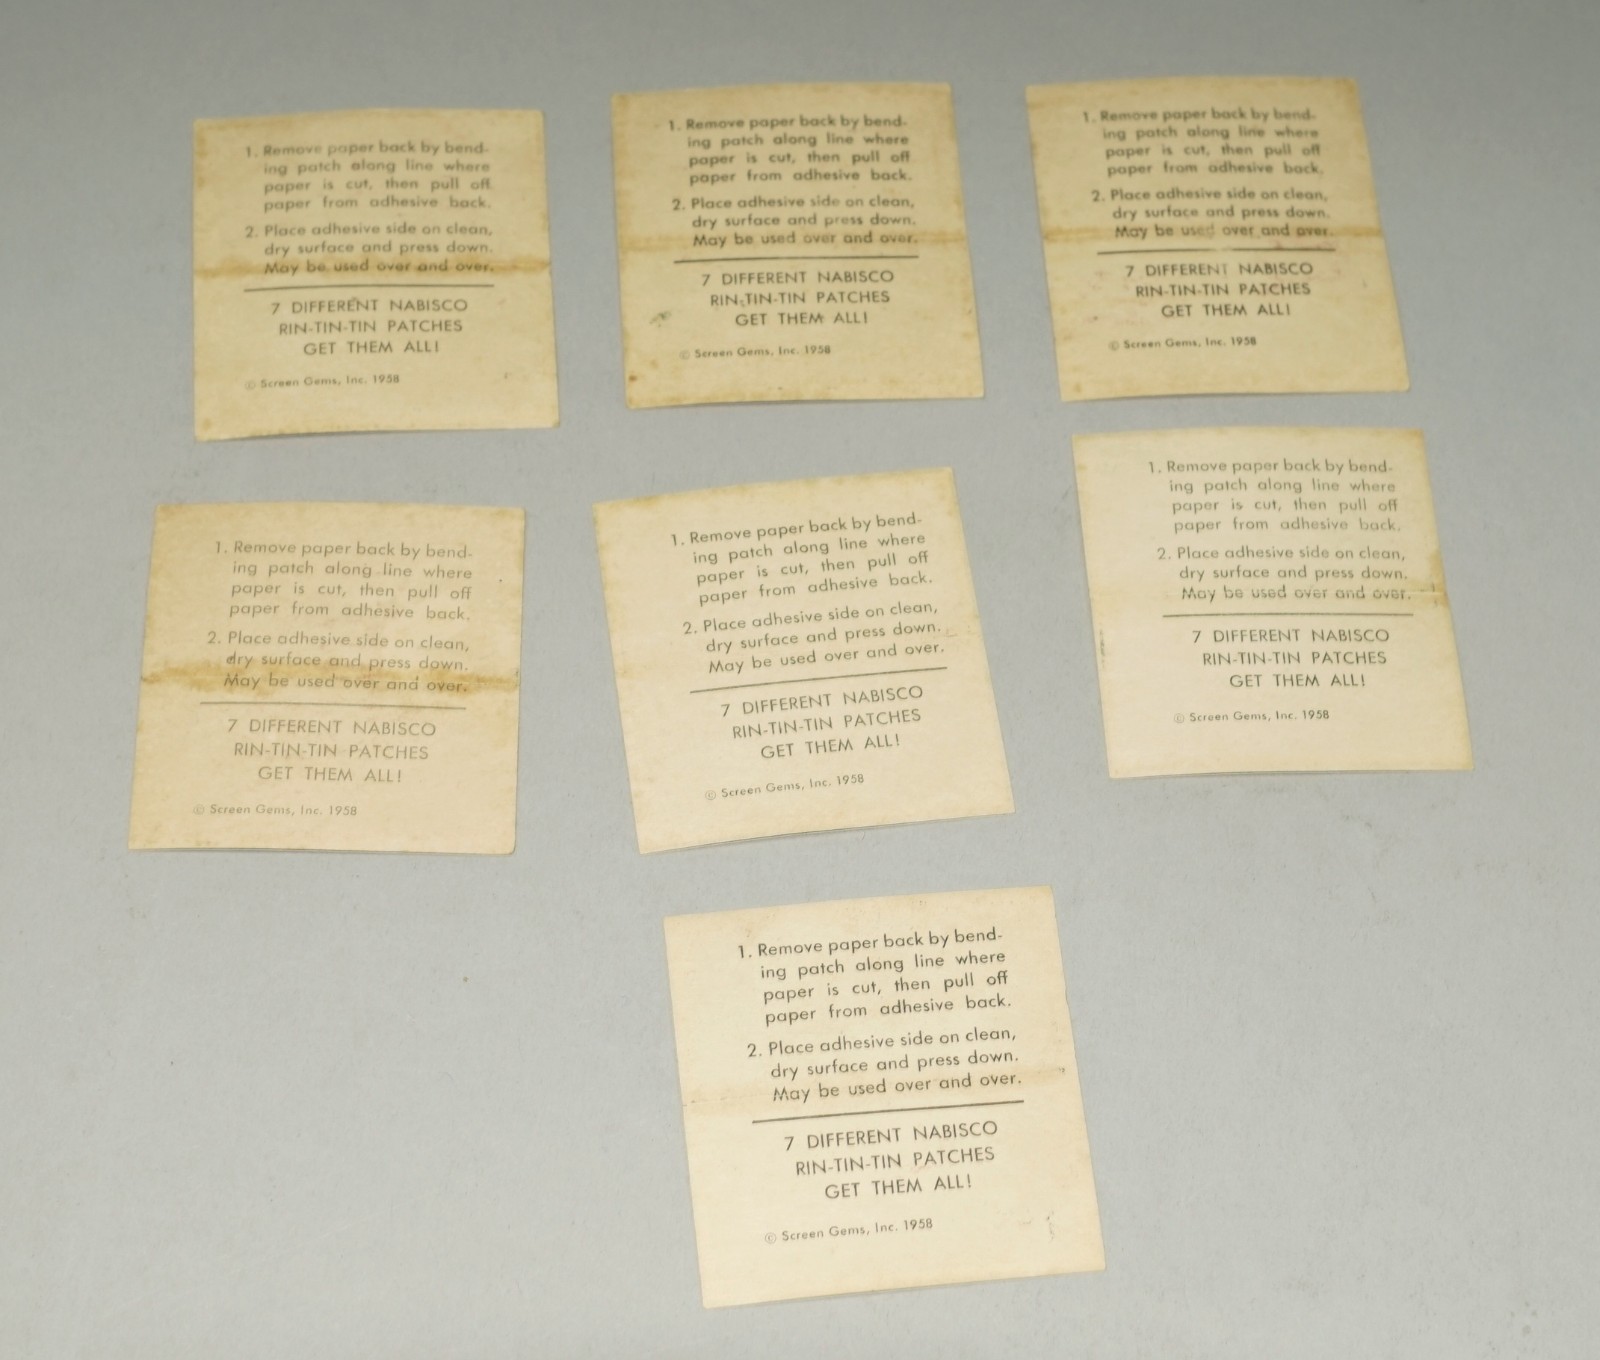 1. Remove paper back by bend-
ing patch along line where
paper is cut, then pull off
paper from adhesive back.
2. Place adhesive side on clean,
dry surface and press down.
May be used over and over.
7 DIFFERENT NABISCO
RIN-TIN-TIN PATCHES
GET THEM ALL!
© Screen Gems, Inc. 1958
1. Remove paper back by bend-
ing patch along line where
paper is cut, then pull off
paper from adhesive back.
2. Place adhesive side on clean,
dry surface and press down.
May be used over and over.
7 DIFFERENT NABISCO
RIN-TIN-TIN PATCHES
GET THEM ALL!
© Screen Gems, Inc. 1958
1. Remove paper back by bend-
ing patch along line where
paper is cut, then pull off
paper from adhesive back.
2. Place adhesive side on clean,
dry surface and press down.
May be used over and over.
7 DIFFERENT NABISCO
RIN-TIN-TIN PATCHES
GET THEM ALL!
© Screen Gems, Inc. 1958
1. Remove paper back by bend-
ing patch along line where
paper is cut, then pull off
paper from adhesive back.
2. Place adhesive side on clean,
dry surface and press down.
May be used over and over.
7 DIFFERENT NABISCO
RIN-TIN-TIN PATCHES
GET THEM ALL!
© Screen Gems, Inc. 1958
1. Remove paper back by bend-
ing patch along line where
paper is cut, then pull off
paper from adhesive back.
2. Place adhesive side on clean,
dry surface and press down.
May be used over and over.
7 DIFFERENT NABISCO
RIN-TIN-TIN PATCHES
GET THEM ALL!
© Screen Gems, Inc. 1958
1. Remove paper back by bend-
ing patch along line where
paper is cut, then pull off
paper from adhesive back.
2. Place adhesive side on clean,
dry surface and press down.
May be used over and over.
7 DIFFERENT NABISCO
RIN-TIN-TIN PATCHES
GET THEM ALL!
© Screen Gems, Inc. 1958
1. Remove paper back by bend-
ing patch along line where
paper is cut, then pull off
paper from adhesive back.
2. Place adhesive side on clean,
dry surface and press down.
May be used over and over.
7 DIFFERENT NABISCO
RIN-TIN-TIN PATCHES
GET THEM ALL!
© Screen Gems, Inc. 1958